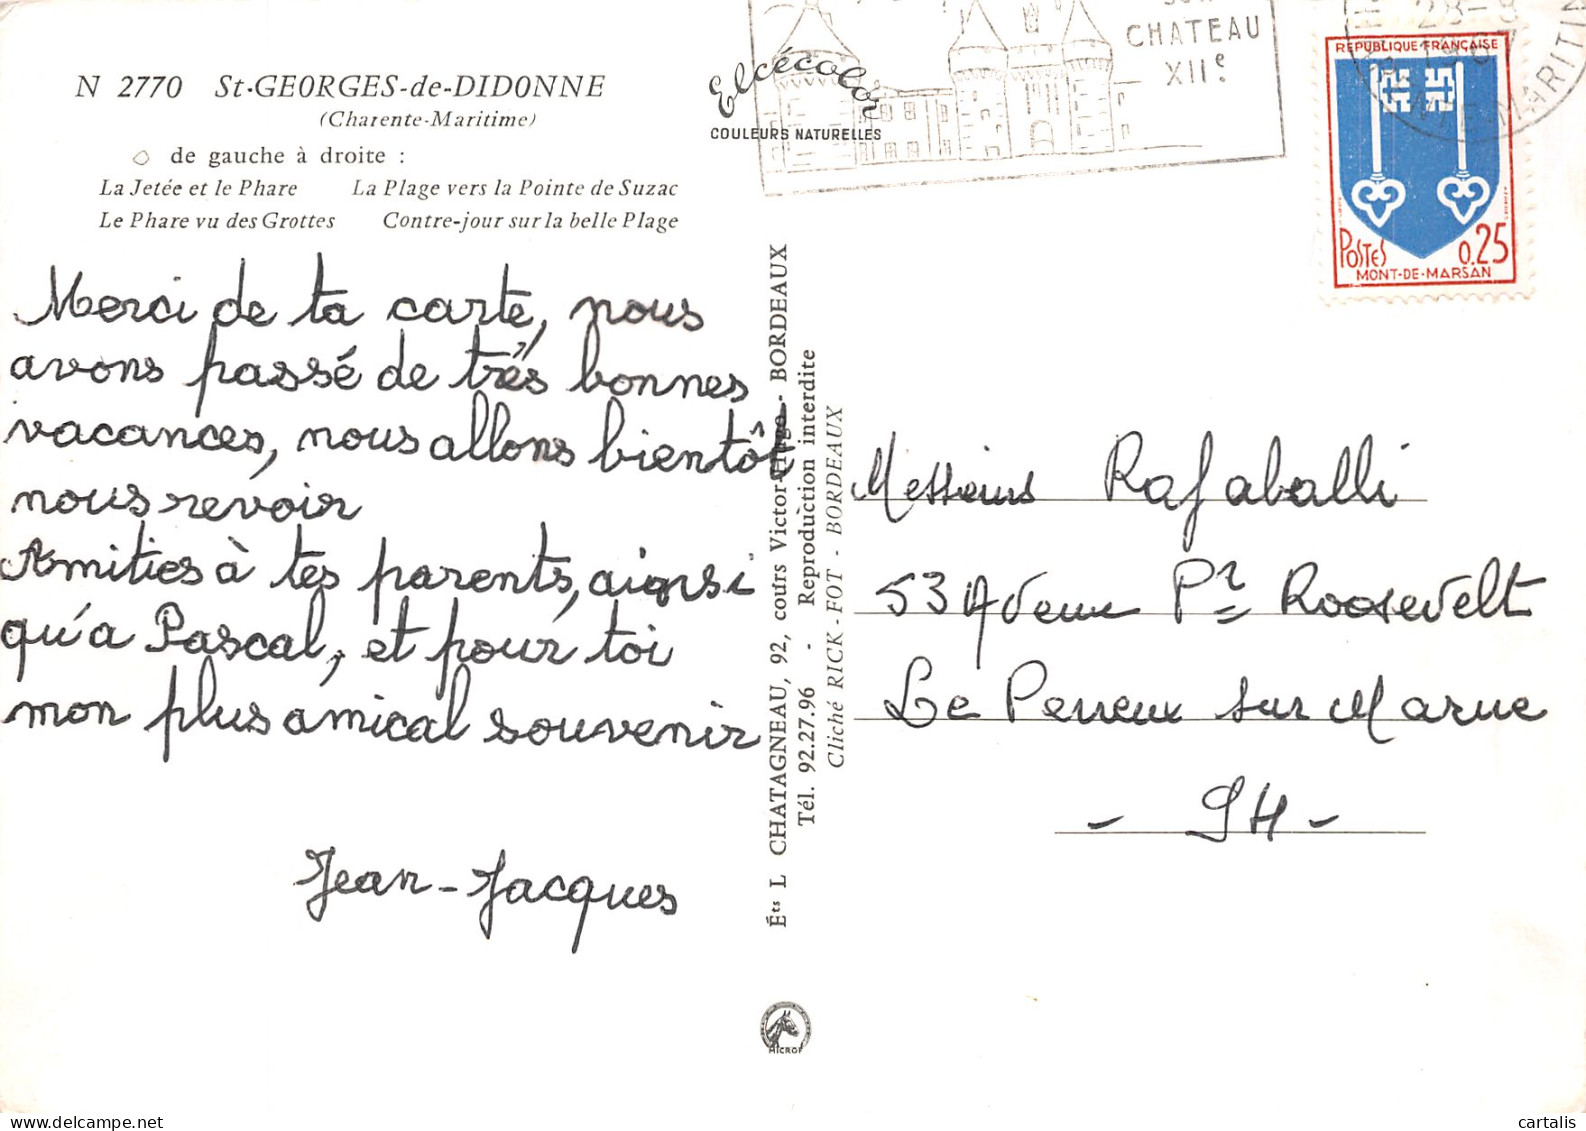 N 2770 St-GEORGES-de-DIDONNE
(Charente-Maritime)
de gauche à droite :
La Jetée et le Phare La Plage vers la Pointe de Suzac
Le Phare vu des Grottes Contre-jour sur la belle Plage
Merci de ta carte, nous
avons passé de très bonnes
vacances, nous allons bientôt
nous revoir
Amitiés à tes parents, ainsi
qu'a Pascal, et pour toi
mon plus amical souvenir
Jean-Jacques
Elcécolor
COULEURS NATURELLES
CHATEAU
XIIe
Éts L CHATAGNEAU, 92, cours Victor-Hugo - BORDEAUX
Tél. 92.27.96 - Reproduction interdite
Cliché RICK-FOT - BORDEAUX
REPUBLIQUE FRANÇAISE
POSTES 0,25
MONT-DE-MARSAN
28-8
1967
TE-MARITIM
Messieurs Rafaballi
53 Avenue Pr Roosevelt
Le Perreux sur Marne
- 94 -
MICROF
cartalis